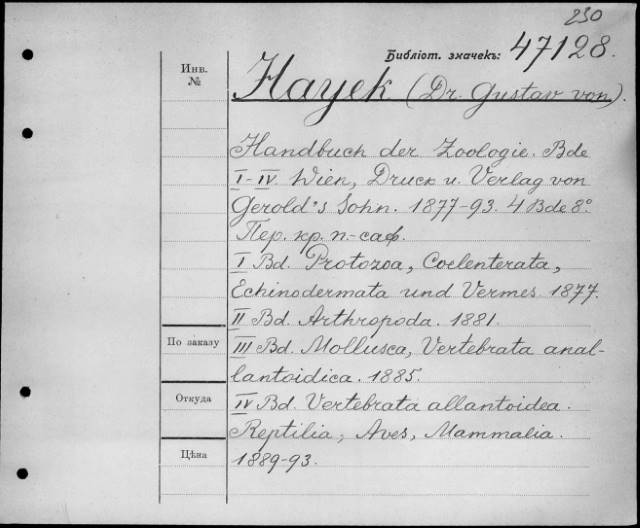 230
Библіот. значекъ: 47128.
Инв. №
Hayek (Dr. Gustav von).
Handbuch der Zoologie. Bde
I-IV. Wien, Druck u. Verlag von
Gerold's Sohn. 1877-93. 4 Bde 8°
Пер. кр. п.-саф.
I Bd. Protozoa, Coelenterata,
Echinodermata und Vermes 1877.
II Bd. Arthropoda. 1881.
По заказу
III Bd. Mollusca, Vertebrata anal-
lantoidica. 1885.
Откуда
IV Bd. Vertebrata allantoidea.
Reptilia, Aves, Mammalia.
Цѣна
1889-93.